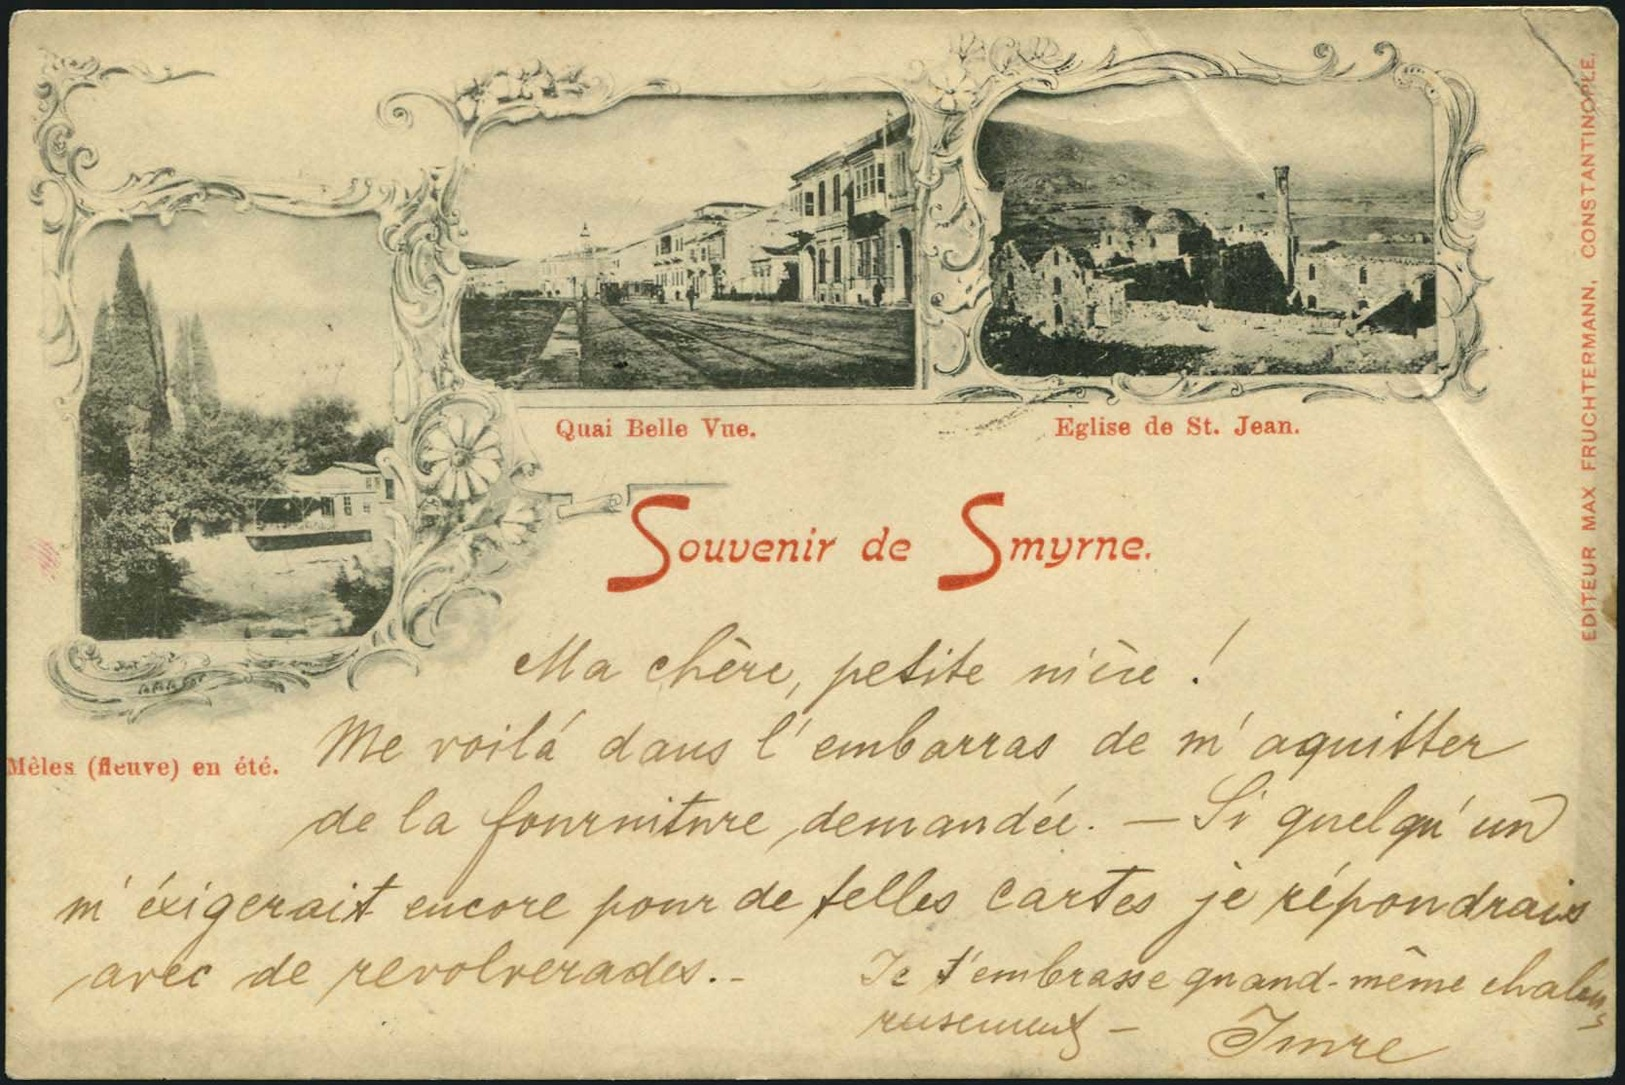 EDITEUR MAX FRUCHTERMANN, CONSTANTINOPLE.
Quai Belle Vue.
Eglise de St. Jean.
Souvenir de Smyrne.
Mêles (fleuve) en été.
Ma chère, petite nièce !
Me voilá dans l'embarras de m'aquitter
de la fourniture demandée. — Si quelqu'un
m'éxigerait encore pour de telles cartes je répondrais
avec de revolverades.-
Je t'embrasse quand-même chaleu-
reusement —
Imre